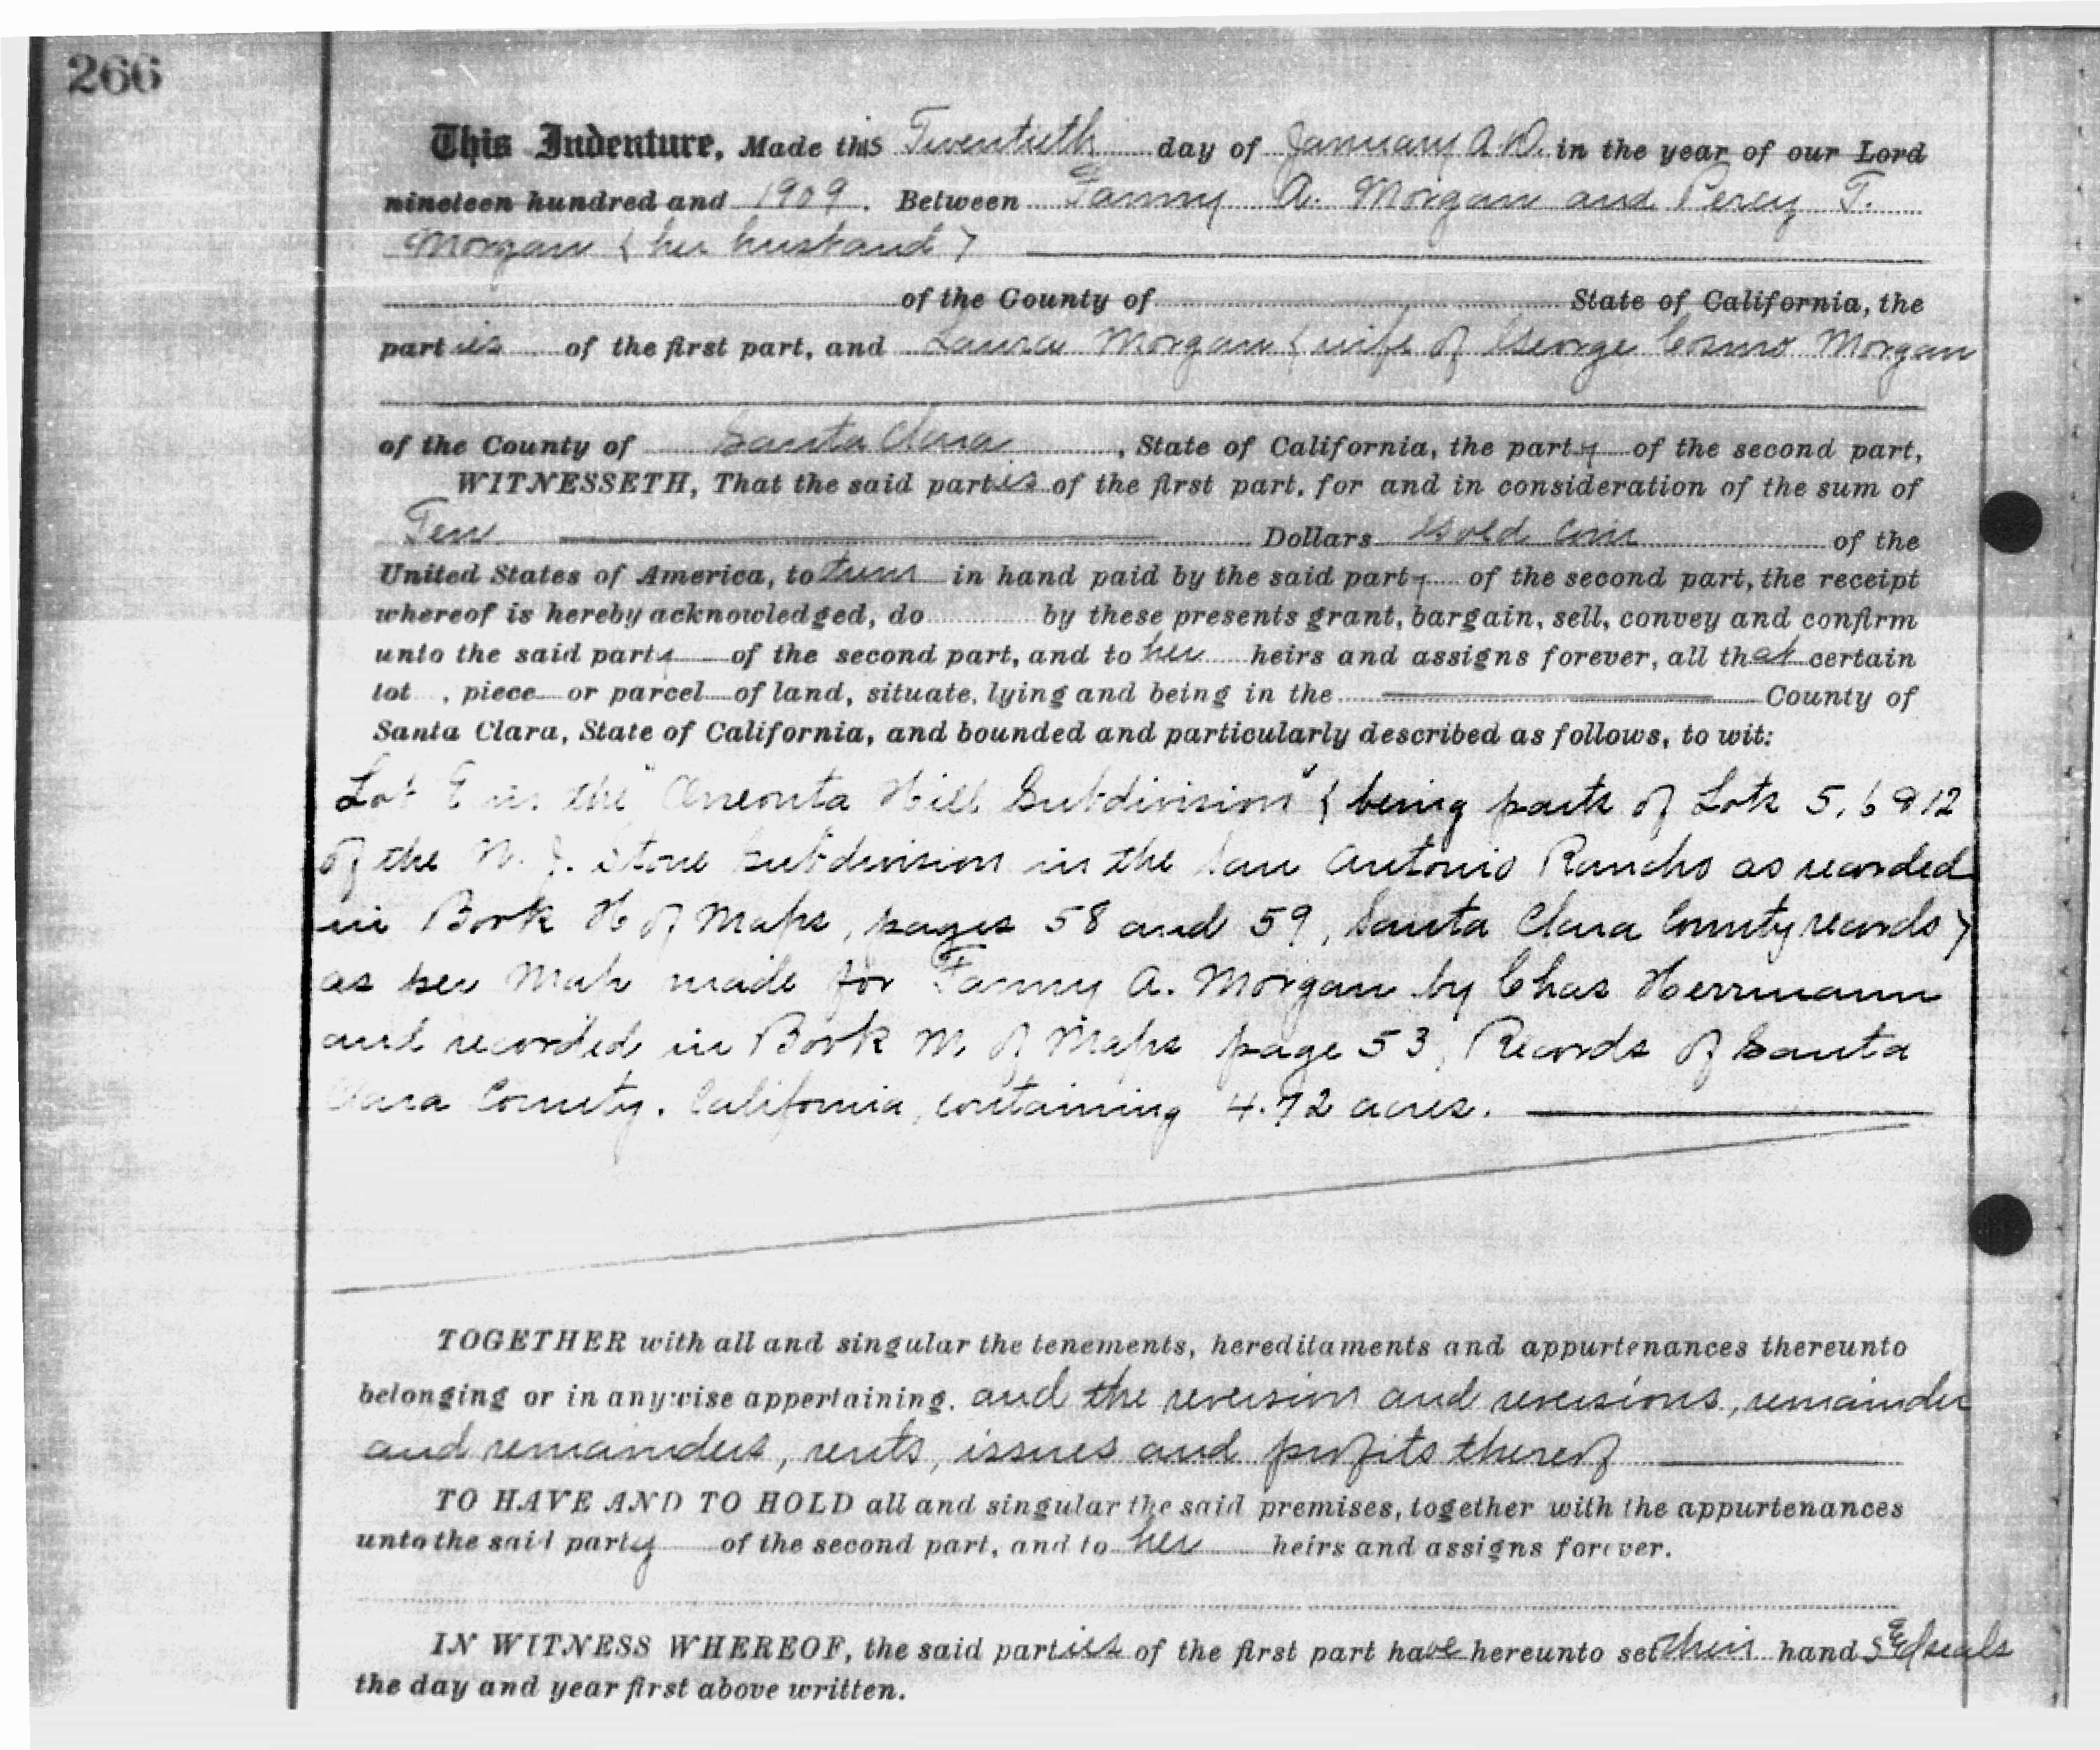 266
This Indenture, Made this Twentieth day of January A.D. in the year of our Lord
nineteen hundred and 1909. Between Fanny A. Morgan and Percy T.
Morgan (her husband)
of the County of State of California, the
parties of the first part, and Laura Morgan (wife of George Cosmo Morgan
of the County of Santa Clara, State of California, the party of the second part,
WITNESSETH, That the said parties of the first part, for and in consideration of the sum of
Ten Dollars Gold Coin of the
United States of America, to them in hand paid by the said party of the second part, the receipt
whereof is hereby acknowledged, do by these presents grant, bargain, sell, convey and confirm
unto the said party of the second part, and to her heirs and assigns forever, all that certain
lot , piece or parcel of land, situate, lying and being in the County of
Santa Clara, State of California, and bounded and particularly described as follows, to wit:
Lot E in the "Oneonta Hill Subdivision" (being parts of Lots 5, 6 & 12
of the N. J. Stone Subdivision in the San Antonio Rancho as recorded
in Book H of Maps, pages 58 and 59, Santa Clara County records)
as per Map made for Fanny A. Morgan by Chas Herrmann
and recorded in Book M of Maps page 53, Records of Santa
Clara County, California, containing 4.72 acres.
TOGETHER with all and singular the tenements, hereditaments and appurtenances thereunto
belonging or in anywise appertaining, and the reversion and reversions, remainder
and remainders, rents, issues and profits thereof
TO HAVE AND TO HOLD all and singular the said premises, together with the appurtenances
unto the said party of the second part, and to her heirs and assigns forever.
IN WITNESS WHEREOF, the said parties of the first part have hereunto set their hands & seals
the day and year first above written.